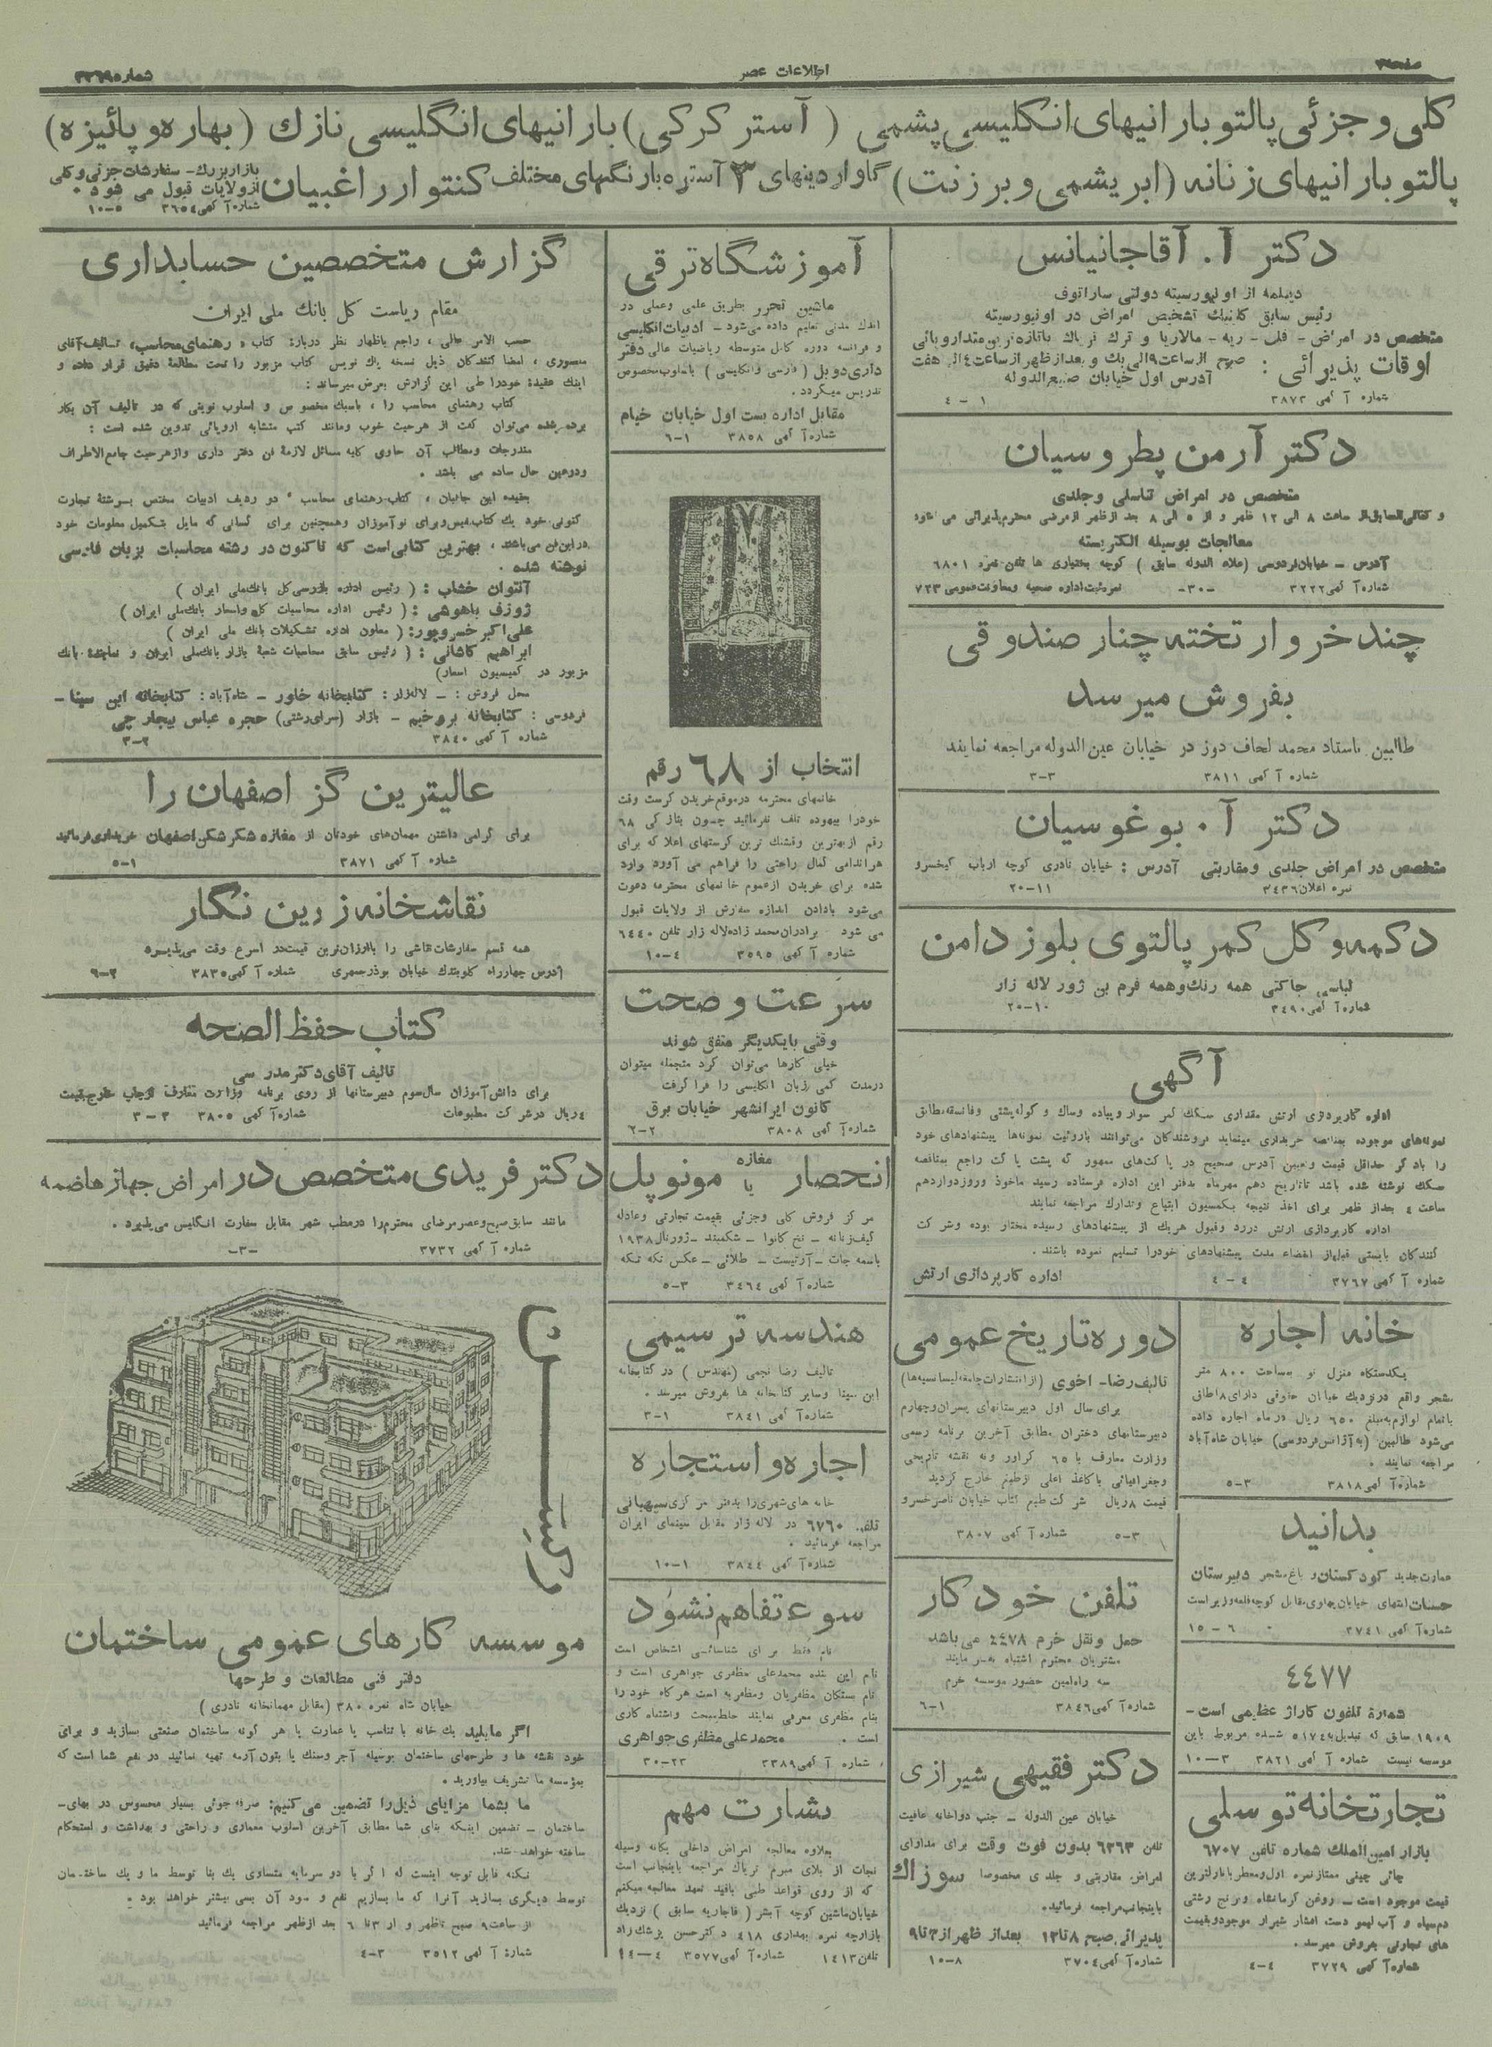 اطلاعات عصر
شماره ۳۳۶۹
کلی و جزئی پالتو بارانیهای انگلیسی پشمی (آستر کرکی) بارانیهای انگلیسی نازک (بهاره و پائیزه)
پالتو بارانیهای زنانه (ابریشمی و برزنت) گاواردینهای ۳ آستره بارنگهای مختلف کنتوار راغبیان
بازار بزرگ - سفارشات جزئی و کلی
از ولایات قبول می شود ۰
شماره آگهی ۳۶۵۴ ۵-۱۰
دکتر آ. آقاجانیانس
دیپلمه از اونیورسیته دولتی ساراتوف
رئیس سابق کلینیک تشخیص امراض در اونیورسیته
متخصص در امراض - قلب - ریه - مالاریا و ترک تریاک باتازه ترین متد اروپائی
اوقات پذیرائی : صبح از ساعت ۹ الی یک و بعد از ظهر از ساعت ۴ الی هفت
آدرس اول خیابان صنیع الدوله
شماره آگهی ۳۸۷۳ ۱-۴
دکتر آرمن پطروسیان
متخصص در امراض تناسلی و جلدی
و کمافی السابق از ساعت ۸ الی ۱۲ ظهر و از ۵ الی ۸ بعد از ظهر از مرضی محترم پذیرائی می شود
معالجات بوسیله الکتریسته
آدرس - خیابان فردوسی (علاء الدوله سابق) کوچه بختیاری ها تلفن نمره ۶۸۰۱
شماره آگهی ۳۲۲۲ -۳۰- نمره ثبت اداره صحیه و معاونت عمومی ۷۲۳
چند خروار تخته چنار صندوقی
بفروش میرسد
طالبین باستاد محمد لحاف دوز در خیابان عین الدوله مراجعه نمایند
شماره آگهی ۳۸۱۱ ۳-۳
دکتر آ. بوغوسیان
متخصص در امراض جلدی و مقاربتی آدرس : خیابان نادری کوچه ارباب کیخسرو
نمره اعلان ۳۴۳۶ ۱۱-۲۰
دکمه و گل کمر پالتوی بلوز دامن
لباس جاکتی همه رنگ و همه فرم بن ژور لاله زار
شماره آگهی ۳۴۹۰ ۱۰-۲۰
آگهی
اداره کارپردازی ارتش مقداری سگک کمر سوار و پیاده و ساک و کوله پشتی و فانسقه مطابق
نمونه های موجوده بمناقصه خریداری مینماید فروشندگان می توانند با رؤیت نمونه ها پیشنهادهای خود
را با ذکر حداقل قیمت و تعیین آدرس صحیح در پاکت های ممهور که پشت پاکت راجع بمناقصه
سگک نوشته شده باشد تا تاریخ دهم مهرماه بدفتر این اداره فرستاده رسید ماخوذ و روز دوازدهم
ساعت ۴ بعد از ظهر برای اخذ نتیجه بکمسیون ابتیاع و تدارک مراجعه نمایند
اداره کارپردازی ارتش در رد و قبول هر یک از پیشنهادهای رسیده مختار بوده و شرکت
کنندگان بایستی قبل از انقضاء مدت پیشنهادهای خود را تسلیم نموده باشند .
شماره آگهی ۳۷۶۷ ۴-۴ اداره کارپردازی ارتش
خانه اجاره
یکدستگاه منزل نو بمساحت ۸۰۰ متر
مشجر واقع در نزدیک خیابان حقوقی دارای ۸ اطاق
با تمام لوازم به مبلغ ۶۵۰ ریال در ماه اجاره داده
می شود طالبین (به آژانس فردوسی) خیابان شاه آباد
مراجعه نمایند .
شماره آگهی ۳۸۱۸ ۳-۵
بدانید
عمارت جدید کودکستان و باغ مشجر دبیرستان
حسنات انتهای خیابان پهلوی مقابل کوچه قلعه وزیر است
شماره آگهی ۳۷۴۱ ۶-۱۵
۴۴۷۷
شماره تلفون گاراژ عظیمی است -
۱۹۰۹ سابق که تبدیل به ۵۱۷۴ شده مربوط باین
موسسه نیست شماره آگهی ۳۸۲۱ ۳-۱۰
تجارتخانه توسلی
بازار امین الملک شماره تلفن ۶۷۰۷
چائی چینی ممتاز نمره اول و معطر با نازلترین
قیمت موجود است - روغن کرمانشاه و برنج رشتی
دم سیاه و آب لیمو دست افشار شیراز موجود و بقیمت
های تجارتی بفروش میرسد .
شماره آگهی ۳۷۲۹ ۴-۴
دوره تاریخ عمومی
تالیف رضا - اخوی (از انتشارات جامعه لیسانسیه ها)
برای سال اول دبیرستانهای پسران و چهارم
دبیرستانهای دختران مطابق آخرین برنامه رسمی
وزارت معارف با ۶۵ گراور و نه نقشه تاریخی
و جغرافیائی با کاغذ اعلی از طبع خارج گردید
قیمت ۸ ریال شرکت طبع کتاب خیابان ناصر خسرو
شماره آگهی ۳۸۰۷ ۳-۵
تلفن خودکار
حمل و نقل خرم ۴۴۷۸ می باشد
مشتریان محترم اشتباه نفرمایند
سه راه امین حضور موسسه خرم
شماره آگهی ۳۸۴۶ ۱-۶
دکتر فقیهی شیرازی
خیابان عین الدوله - جنب دواخانه عافیت
تلفن ۶۲۶۳ بدون فوت وقت برای مداوای
امراض مقاربتی و جلدی مخصوصا سوزاک
باینجانب مراجعه فرمائید.
پذیرائی صبح ۸ تا ۱۲ بعد از ظهر از ۳ تا ۹
شماره آگهی ۳۷۰۴ ۸-۱۰
آموزشگاه ترقی
ماشین تحریر بطریق علمی و عملی در
اندک مدتی تعلیم داده می شود - ادبیات انگلیسی
و فرانسه دوره کامل متوسطه ریاضیات عالی دفتر
داری دوبل (فارسی و انگلیسی) باسلوب مخصوص
تدریس میگردد .
مقابل اداره پست اول خیابان خیام
شماره آگهی ۳۸۵۸ ۱-۶
انتخاب از ۶۸ رقم
خانمهای محترمه در موقع خریدن کرست وقت
خود را بیهوده تلف نفرمائید چون بتازگی ۶۸
رقم از بهترین و قشنگ ترین کرستهای اعلا که برای
هر اندامی کمال راحتی را فراهم می آورد وارد
شده برای خریدن از عموم خانمهای محترمه دعوت
می شود با دادن اندازه سفارش از ولایات قبول
می شود برادران محمد زاده لاله زار تلفن ۶۴۴۰
شماره آگهی ۳۵۹۵ ۴-۱۰
سرعت و صحت
وقتی با یکدیگر متفق شوند
خیلی کارها می توان کرد منجمله میتوان
در مدت کمی زبان انگلیسی را فرا گرفت
کانون ایرانشهر خیابان برق
شماره آگهی ۳۸۰۸ ۲-۲
انحصار با مغازه مونوپل
مرکز فروش کلی و جزئی بقیمت تجارتی و عادله
کیف زنانه - نخ کانوا - شکمبند - ژورنال ۱۹۳۸
باسمه جات - آرتیست - طلائی - عکس تکه تکه
شماره آگهی ۳۴۶۴ ۳-۵
هندسه ترسیمی
تالیف رضا نجمی (مهندس) در کتابخانه
ابن سینا و سایر کتابخانه ها بفروش میرسد .
شماره آگهی ۳۸۴۱ ۱-۳
اجاره و استجاره
خانه های شهری را بدفتر مرکزی سپهبانی
تلفن ۶۷۶۰ در لاله زار مقابل سینمای ایران
مراجعه فرمائید .
شماره آگهی ۳۸۴۴ ۱-۱۰
سوء تفاهم نشود
نام فقط برای شناسائی اشخاص است
نام این بنده محمد علی مظفری جواهری است و
نام بستگان مظفریان و مظفریه است هرگاه خود را
بنام مظفری معرفی نمایند خلط مبحث و اشتباه کاری
است . محمد علی مظفری جواهری
شماره آگهی ۳۳۸۹ ۲۳-۳۰
بشارت مهم
بعلاوه معالجه امراض داخلی یگانه وسیله
نجات از بلای مبرم تریاک مراجعه باینجانب است
که از روی قواعد طبی باقید تعهد معالجه میکنم
خیابان ماشین کوچه آبشر (قاجاریه سابق) نزدیک
بازارچه نمره بهداری ۴۱۸ دکتر حسن پزشک زاد
تلفن ۱۴۱۳ شماره آگهی ۳۵۷۷
گزارش متخصصین حسابداری
مقام ریاست کل بانک ملی ایران
حسب الامر عالی ، راجع باظهار نظر درباره کتاب « رهنمای محاسب » تألیف آقای
منصوری ، امضا کنندگان ذیل نسخه پاک نویس کتاب مزبور را تحت مطالعهٔ دقیق قرار داده و
اینک عقیده خود را طی این گزارش بعرض میرساند :
کتاب رهنمای محاسب را ، با سبک مخصوص و اسلوب نوینی که در تالیف آن بکار
برده شده می توان گفت از هر حیث خوب و مانند کتب متشابه اروپائی تدوین شده است :
مندرجات و مطالب آن حاوی کلیه مسائل لازمهٔ فن دفتر داری و از هر حیث جامع الاطراف
و در عین حال ساده می باشد .
بعقیده این جانبان ، کتاب رهنمای محاسب ، در ردیف ادبیات مختص برشتهٔ تجارت
کنونی خود یک کتاب نفیس و برای نوآموزان و همچنین برای کسانی که مایل بتکمیل معلومات خود
در این فن می باشند ، بهترین کتابی است که تاکنون در رشته محاسبات بزبان فارسی
نوشته شده .
آنتوان خشاب : (رئیس اداره بازرسی کل بانک ملی ایران)
ژوزف باهوشی : (رئیس اداره محاسبات کل و اسعار بانک ملی ایران)
علی اکبر خسروپور: (معاون اداره تشکیلات بانک ملی ایران)
ابراهیم کاشانی : (رئیس سابق محاسبات شعبهٔ بازار بانک ملی ایران و نمایندهٔ بانک
مزبور در کمیسیون اسعار)
محل فروش : - لاله زار : کتابخانه خاور - شاه آباد : کتابخانه ابن سینا -
فردوسی : کتابخانه بروخیم - بازار (سرای رشتی) حجره عباس بیجارچی
شماره آگهی ۳۸۴۰ ۲-۳
عالیترین گز اصفهان را
برای گرامی داشتن مهمان های خودتان از مغازه شکرشکن اصفهان خریداری فرمائید
شماره آگهی ۳۸۷۱ ۱-۵
نقاشخانه زرین نگار
همه قسم سفارشات نقاشی را با ارزان ترین قیمت در اسرع وقت می پذیرد
آدرس چهارراه گلوبندک خیابان بوذرجمهری شماره آگهی ۳۸۳۵ ۲-۶
کتاب حفظ الصحه
تالیف آقای دکتر مدرسی
برای دانش آموزان سال سوم دبیرستانها از روی برنامه وزارت معارف از چاپ خارج قیمت
۴ ریال در شرکت مطبوعات شماره آگهی ۳۸۰۵ ۳-۳
دکتر فریدی متخصص در امراض جهاز هاضمه
مانند سابق صبح و عصر مرضای محترم را در مطب شهر مقابل سفارت انگلیس می پذیرد .
شماره آگهی ۳۷۳۲ -۳-
موسسه کارهای عمومی ساختمان
دفتر فنی مطالعات و طرحها
خیابان شاه نمره ۳۸۰ (مقابل مهمانخانه نادری)
اگر مایلید یک خانه با تناسب یا عمارت یا هر گونه ساختمان صنعتی بسازید و برای
خود نقشه ها و طرحهای ساختمان بوسیله آجر و سنگ یا بتون آرمه تهیه نمائید در نفع شما است که
بمؤسسه ما تشریف بیاورید .
ما بشما مزایای ذیل را تضمین می کنیم: صرفه جوئی بسیار محسوس در بهای -
ساختمان - تضمین اینکه بنای شما مطابق آخرین اسلوب معماری و راحتی و بهداشت و استحکام
ساخته خواهد شد.
نکته قابل توجه اینست که اگر با دو سرمایه متساوی یک بنا توسط ما و یک ساختمان
توسط دیگری بسازید آنرا که ما بسازیم نفع و سود آن بسی بیشتر خواهد بود .
از ساعت ۹ صبح تا ظهر و از ۳ تا ۶ بعد از ظهر مراجعه فرمائید
شماره آگهی ۳۵۱۲ ۳-۴